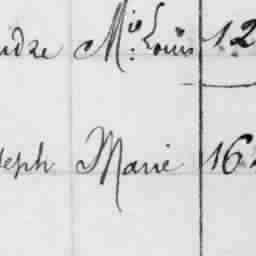 udre M.ie Louis 12
seph Marie 16